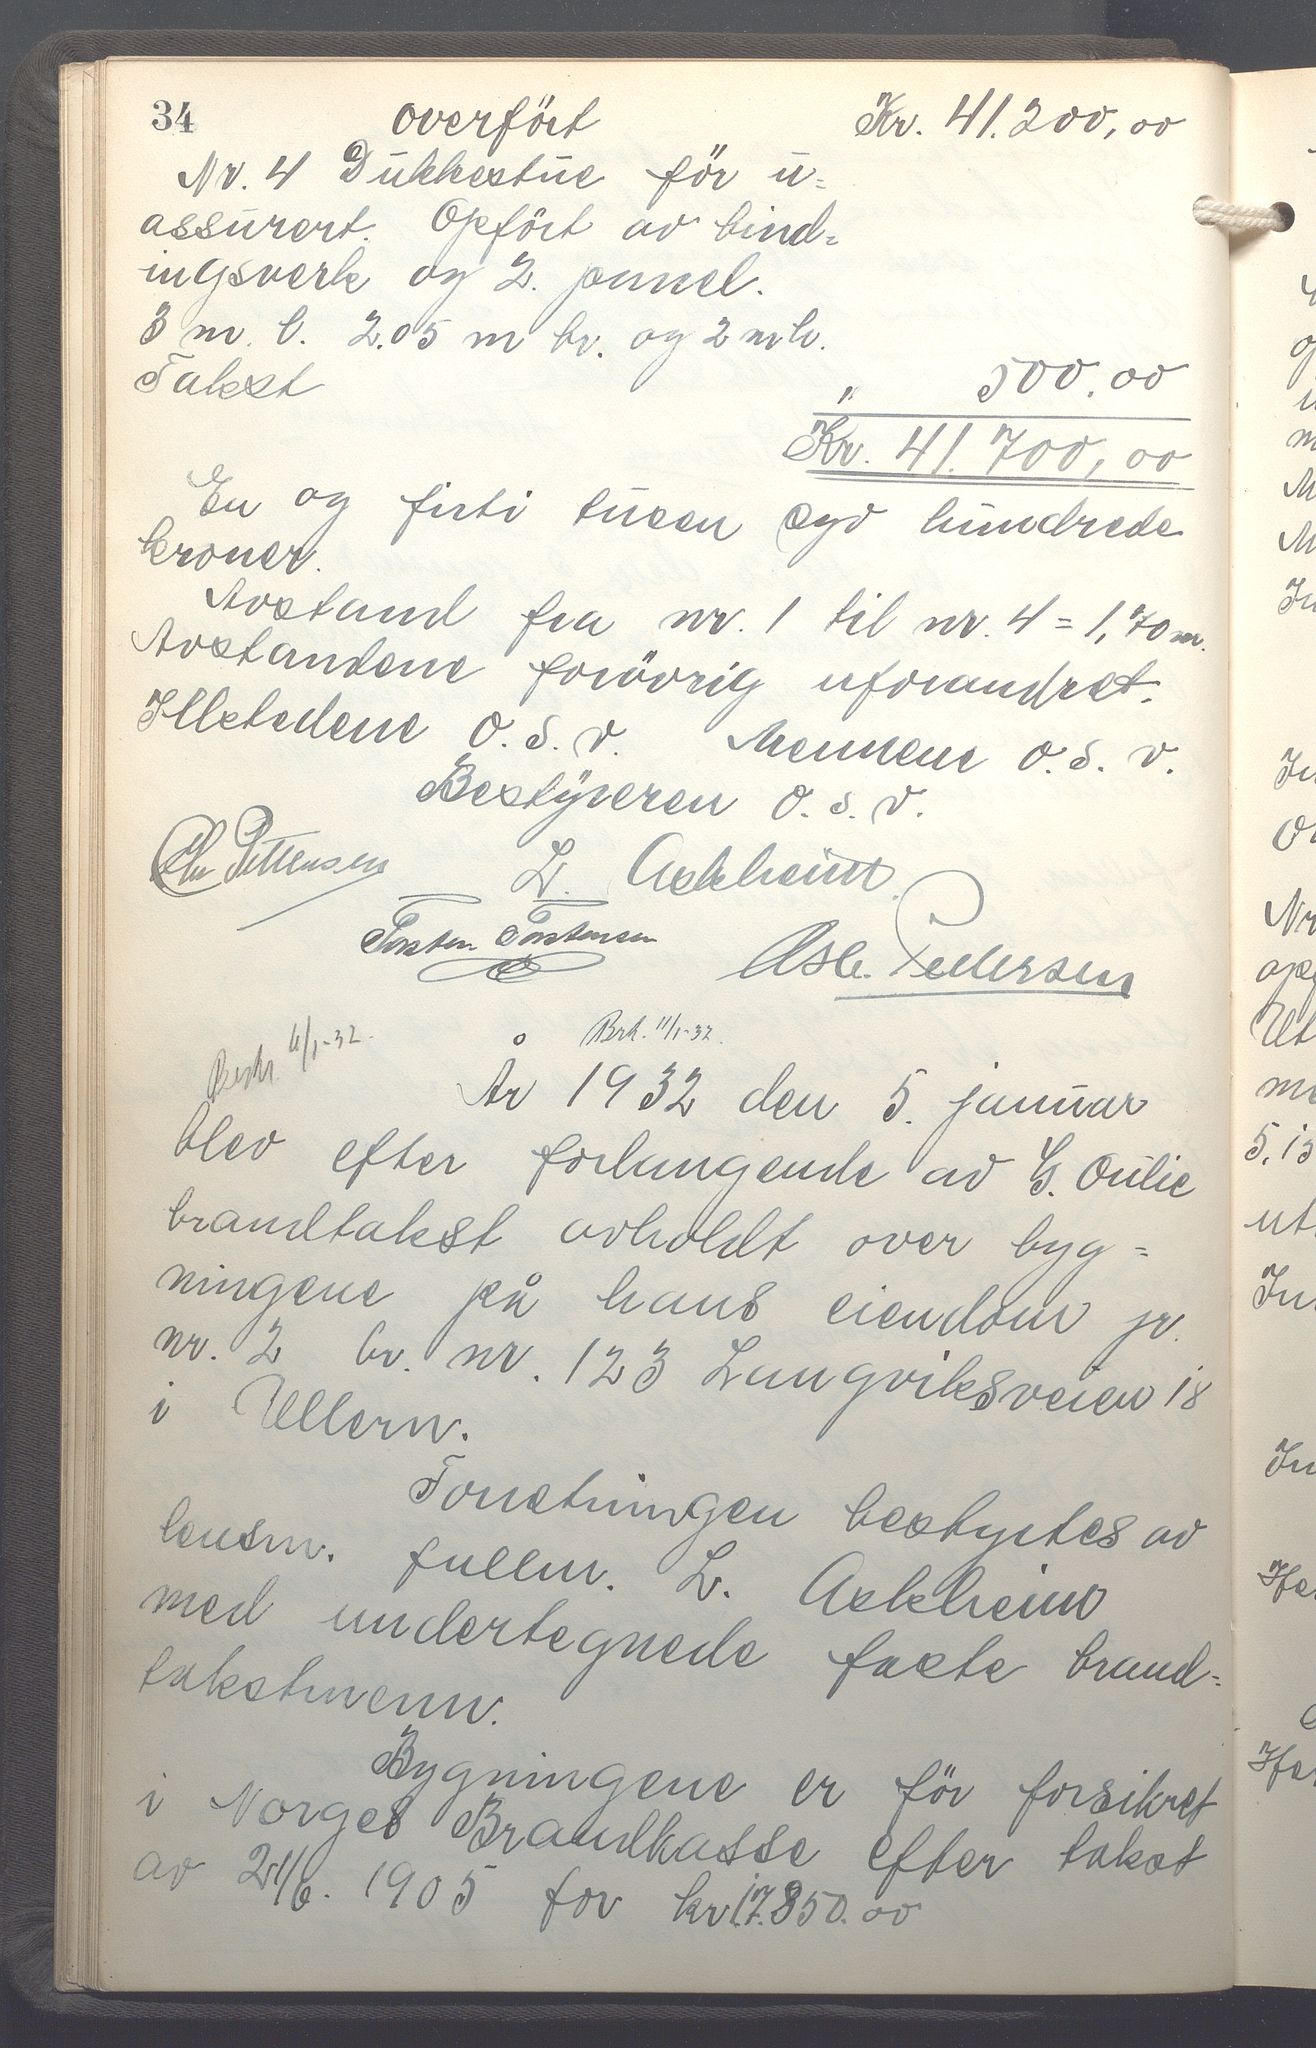 34 overført Kr. 41.200,00
Nr. 4 Dukkestue för u-
assurert. Opfört av bind-
ingsverk og 2. panel.
3 m. l. 2.05 m br. og 2 m h.
Takst " 500.00
Kr. 41.700,00
En og firti tusen syv hundrede
kroner.
Avstand fra nr. 1 til nr. 4 = 1,70 m.
Avstandene forövrig uforandret.
Ildstedene o.s.v. Mennene o.s.v.
Bestyreren o.s.v.
Chr Pettersen L. Askheim
Torsten Torstensen Asb. Pedersen
Besk. 11/1-32. Brk. 11/1-32.
År 1932 den 5. januar
blev efter forlangende av G. Oulie
brandtakst avholdt over byg-
ningene på hans eiendom gr.
nr. 2 br. nr. 123 Langviksveien 18
i Ullern.
Forretningen bestyrtes av
lensm. fullm. L. Askheim
med undertegnede faste brand-
takstmenn.
Bygningene er för forsikret
i Norges Brandkasse efter takst
av 21/6. 1905 for kr. 17.850.00